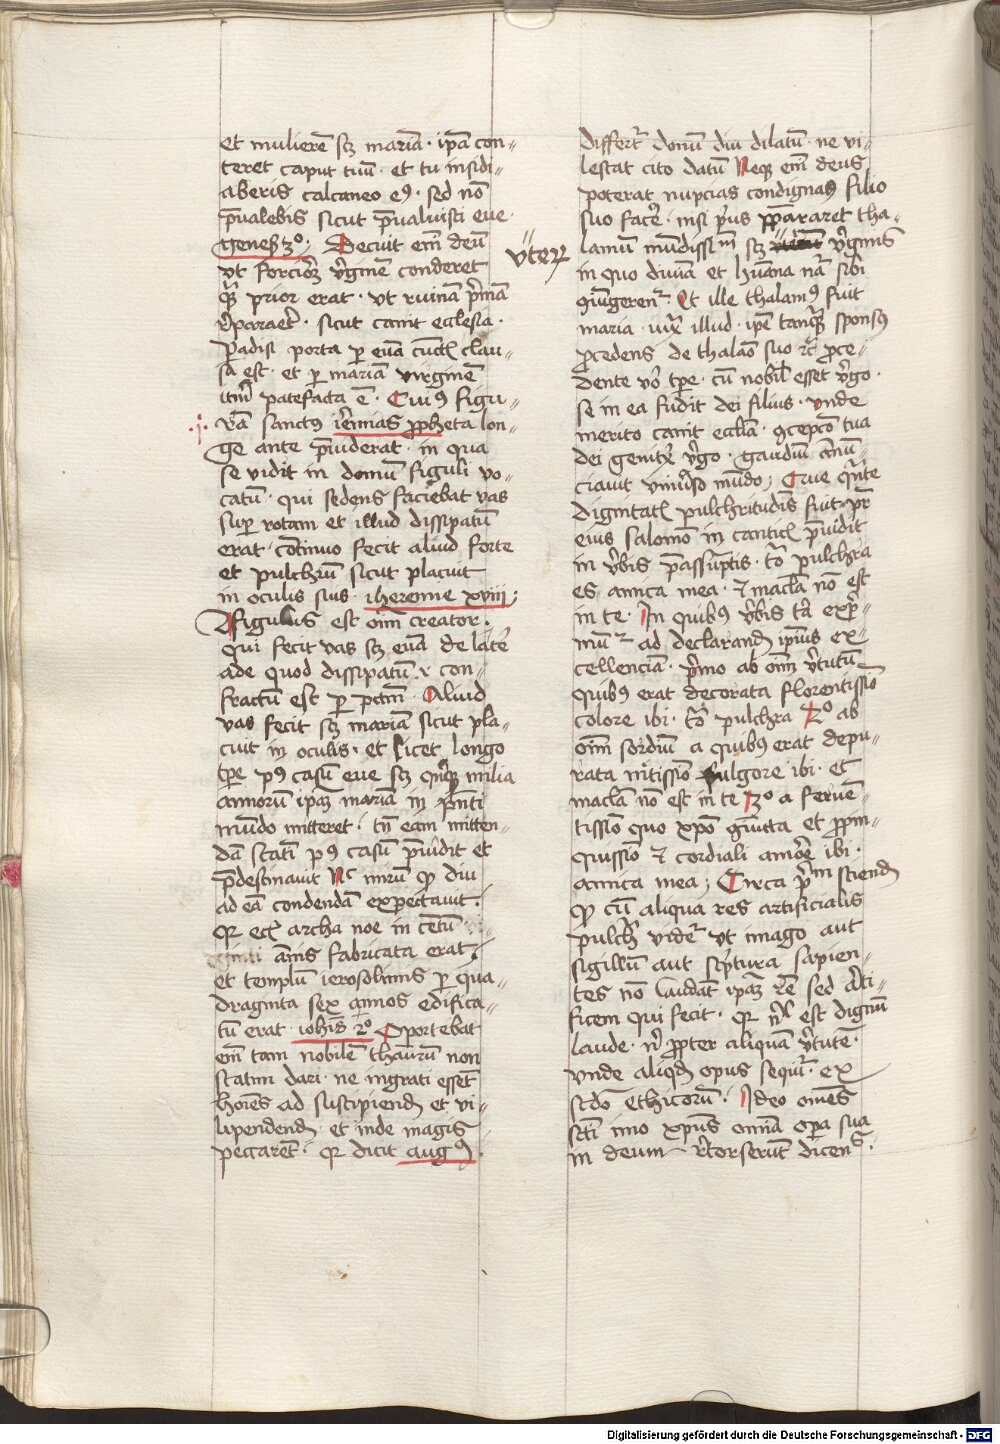 et mulierē scꝫ mariā · ip̄a con-
teret caput tuū · et tu insidi-
aberis calcaneo eꝰ · sed nō
p̄ualebis sicut p̄ualuisti eue ·
geneß 3º · Decuit em̄ deū
vt forcioꝝ v̓ginē conderet
qͣꝫ prior erat · vt ruinā p̓mā
r̓pararet · sicut canit ecclesia ·
Paradisi porta ꝑ euā cūctꝭ clau-
sa est · et ꝑ mariā virginē
itꝝ patefacta ē · Cuiꝰ figu-
rā sanctꝰ ieremias ꝓpheta lon-
ge ante p̄uiderat · in qua
se vidit in domū figuli vo-
catū · qui sedens faciebat vas
suꝑ rotam et illud dissipatū
erat · cōtinuo fecit aliud forte
et pulchrū sicut placuit
in oculis suis · iheremie xviij ·
Figulus est om̄ creator ·
qui fecit vas scꝫ euā de late
ade quod dissipatū ⁊ con-
fractū est ꝑ pctm̄ · Aliud
vas fecit scꝫ mariā sicut pla-
cuit in oculis · et licet longo
tꝑe pꝰ casū eue scꝫ qn̄qꝫ milia
annorū ip̄aꝫ mariā in p̄nti
mūdo mitteret · tn̄ eam mitten-
dā statī pꝰ casū p̄uidit et
p̄destinauit Nc̄ mirū ꝙ diu
ad eā condendā expectauit ·
qꝛ etꝭ archa noe in cētū vi-
ginti ānis fabricata erat ·
et templū ierosolimis ꝑ qua
draginta sex annos edifica-
tū erat · ioh̄is 2º Oportebat
em̄ tam nobilē thaurū non
statim dari · ne ingrati essēt
hoīes ad suscipiend̄ et vi-
lipendend̄ et inde magis
peccarēt · qꝛ dicit augꝰ ·
vteꝝ
differt̓ donū diu dilatū · ne vi-
lescat cito datū Neqꝫ em̄ deus
poterat nupcias condignas filio
suo facere · nisi p̓us p̄pararet tha-
lamū mūdissimū scꝫ v̓ginis
in quo diuinā et hūana nām sibi
ꝯiūgeret᷑ · Et ille thalamꝰ fuit
maria · iux̄ illud · ip̄e tanqͣꝫ sponsꝰ
ꝓcedens de thalāo suo ⁊c̄ ꝓce-
dente vo̓ tꝑe · cū nobil̓ esset v̓go ·
se in ea fudit dei filius · vnde
merito canit eccl̄ia · ꝯcepcō tua
dei genitx̓ v̓go · gaudiū ānū-
ciauit vniu̓so mūdo · Cuiꝰ qn̄te
dignitatꝭ pulchritudīs fuit · pr̄
eius salomō in canticꝭ p̄uidit
in v̓bis p̄assūptis · tō pulchra
es amica mea · ⁊ macl̄a nō est
in te · In quibus v̓bis tā exp̄-
mūt᷑ ad declarand̄ ip̄ius ex-
cellenciā · p̓mo ab om̄ v̓tutū
quibꝰ erat decorata florentissīo
colore ibi · tō pulchra 2º ab
om̄ sordiū a quibꝰ erat depu-
rata nitissīo fulgore ibi · et
macl̄a nō est in te 3º a feruē-
tissīo quo xp̄o giūcta et ꝓpin-
quissīo ⁊ cordiali amōre ibi ·
amica mea · Circa p̓mū sciend̄
ꝙ cū aliqua res artificialis
pulch̓ videt᷑ vt imago aut
sigillū aut sc̓ptura sapien-
tes nō laudāt ip̄aꝫ rē sed arti-
ficem qui fecit · qꝛ nl̄ est dignū
laude · n̓ ꝓpter aliquā v̓tutē ·
vnde aliqd̄ opus sequit᷑ · ex
scdō ethicorū · Ideo omēs
sc̄ti imo xp̄us omīa oꝑa sua
in deum r̓torserūt dicens ·
Digitalisierung gefördert durch die Deutsche Forschungsgemeinschaft · DFG